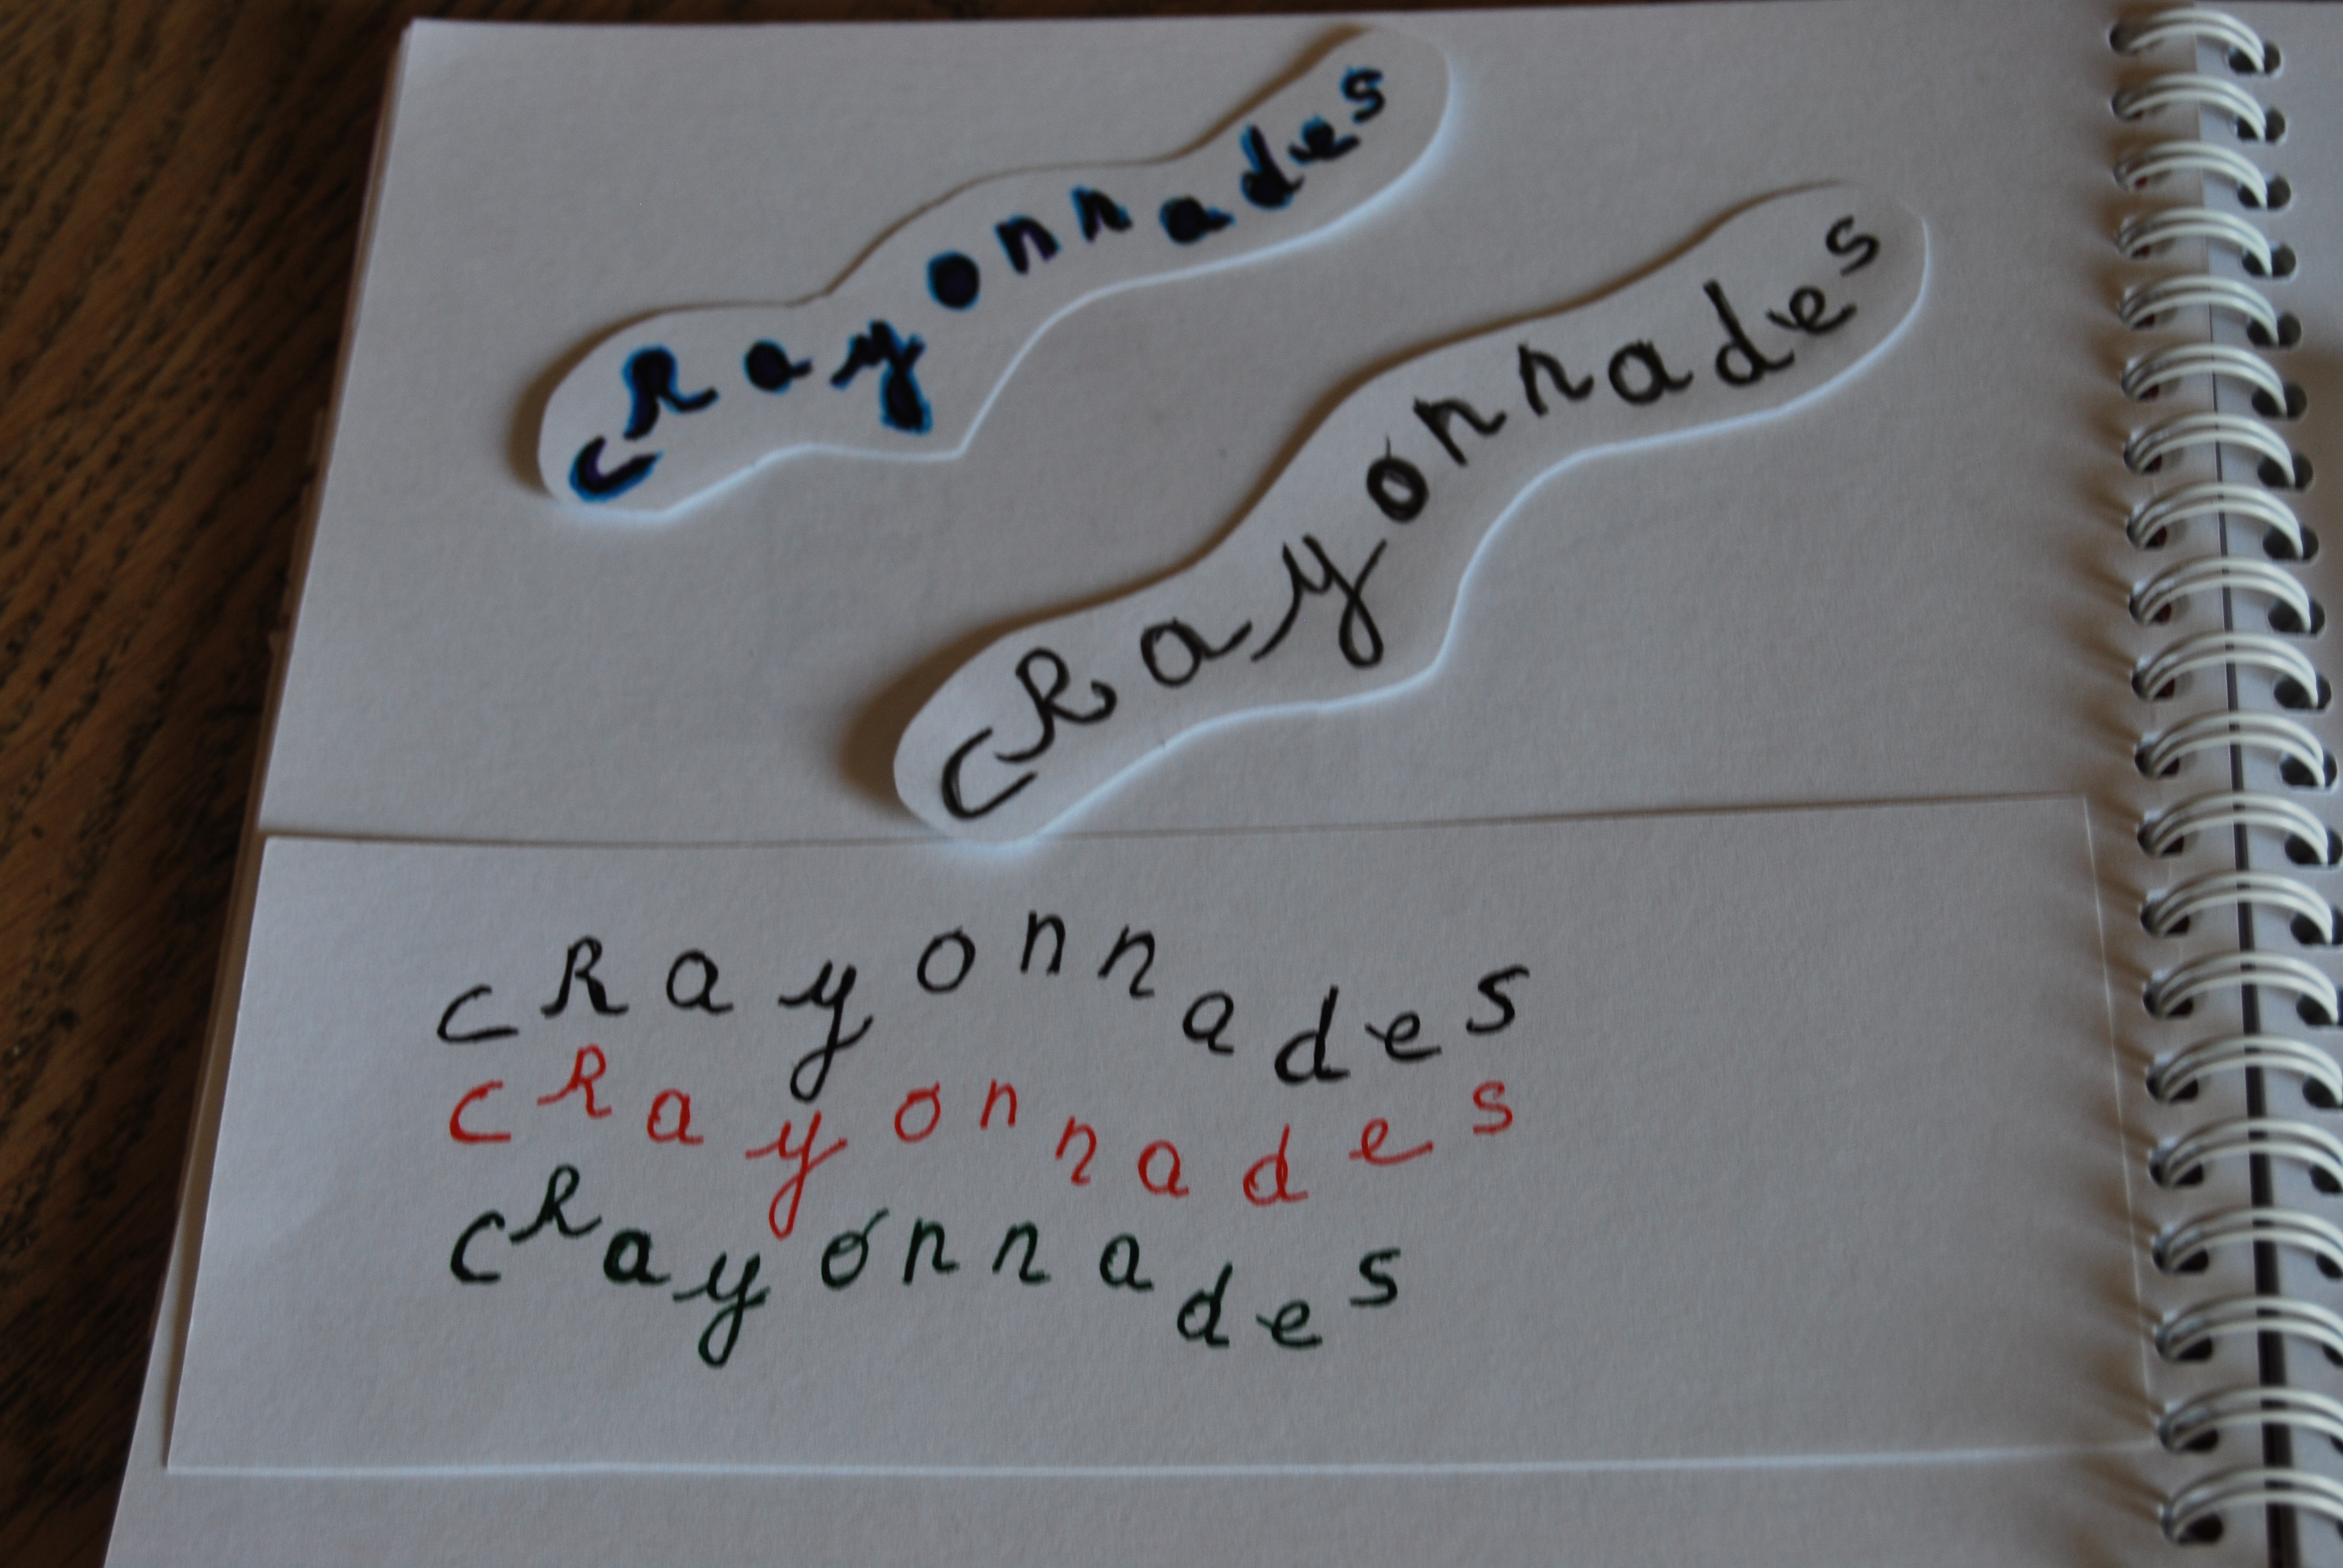 cRayonnades
cRayonnades
cRayonnades
cRayonnades
cRayonnades